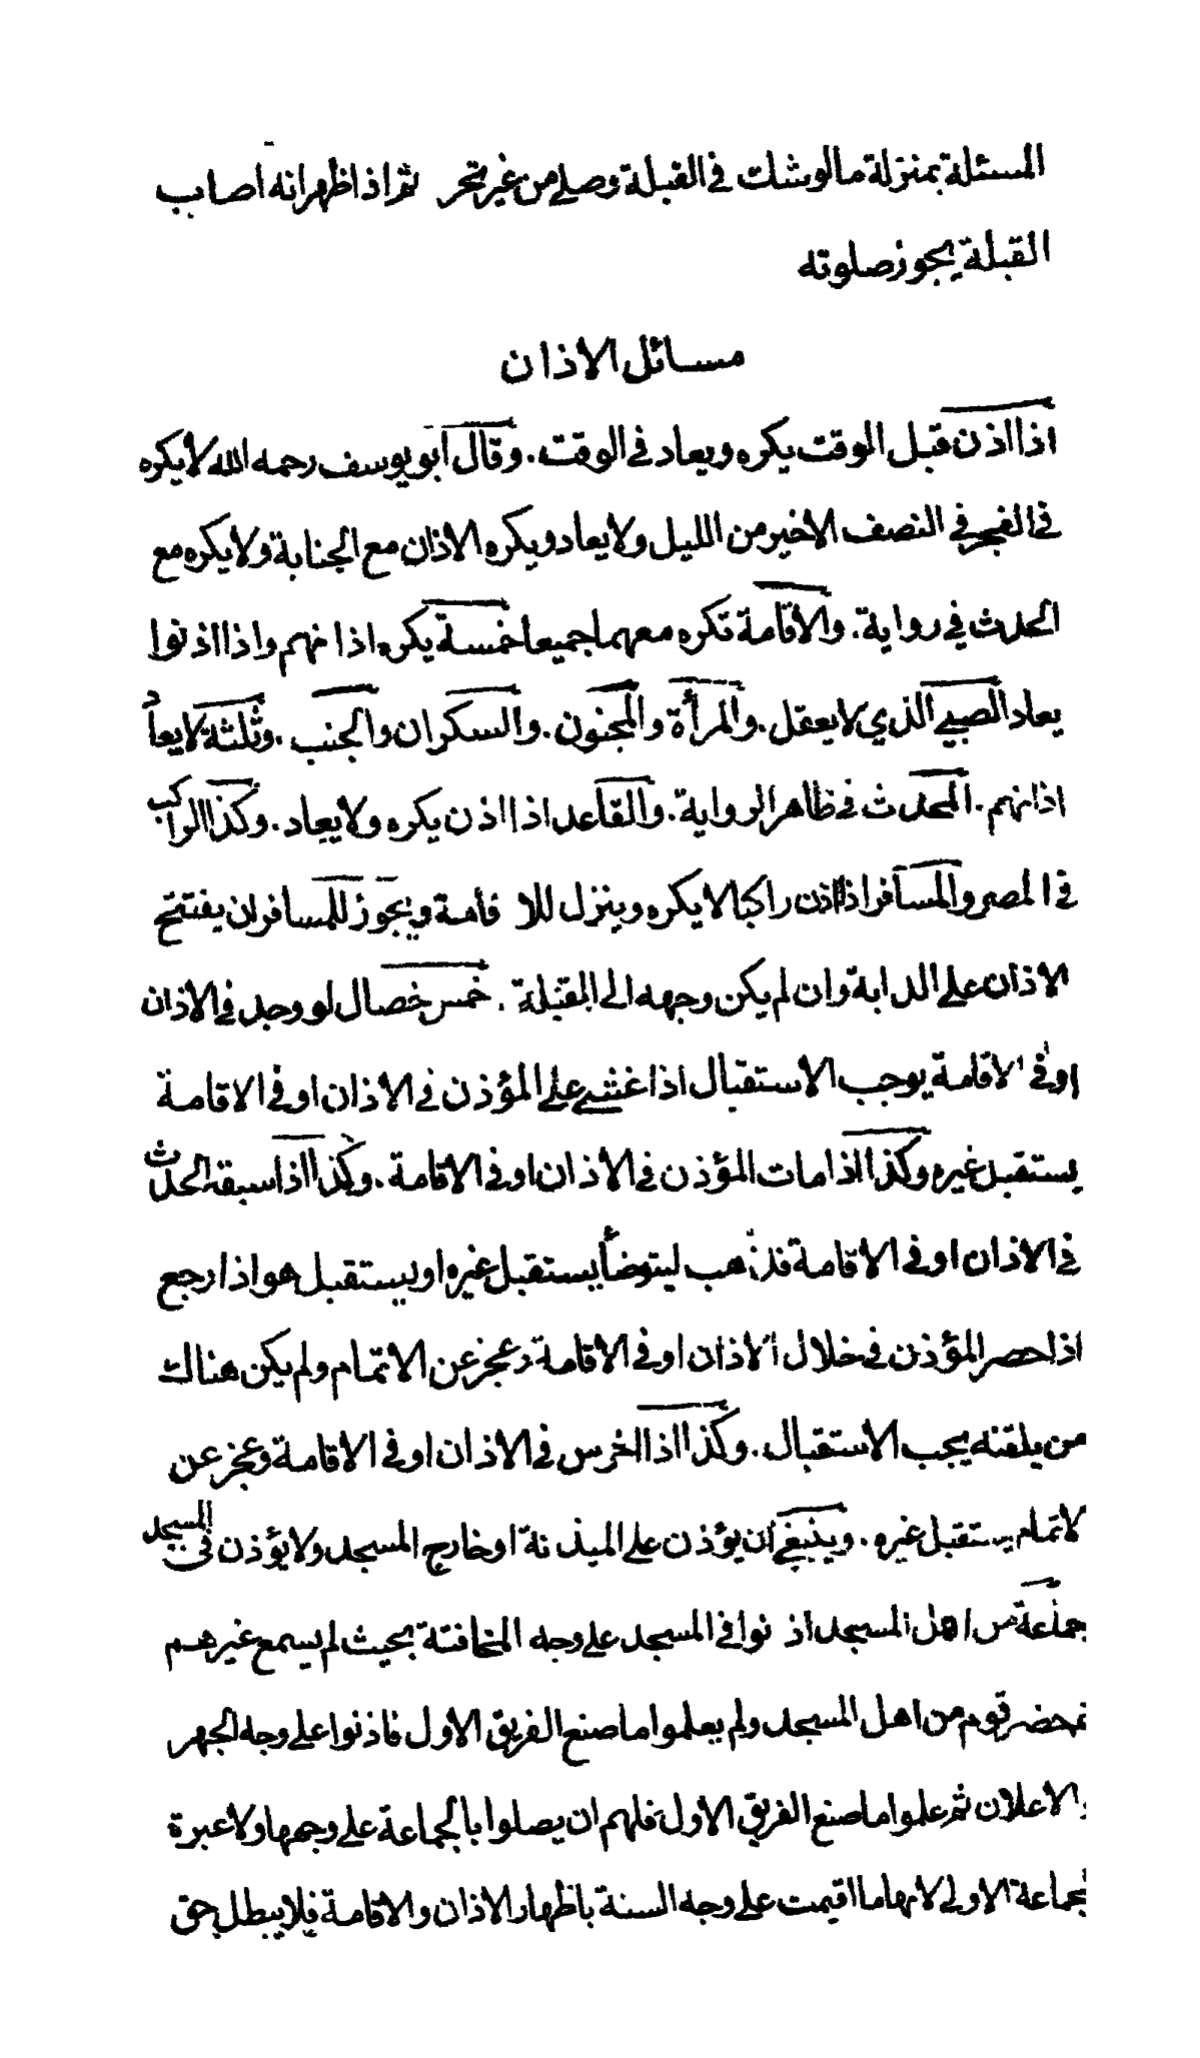 المسئلة بمنزلة ما لو شك في القبلة وصلى من غير تحر ثم اذا ظهر انه اصاب
القبلة يجوز صلوته
مسائل الاذان
اذا اذن قبل الوقت يكره ويعاد في الوقت. وقال ابو يوسف رحمه الله لا يكره
في الفجر في النصف الاخير من الليل ولا يعاد ويكره الاذان مع الجنابة ولا يكره مع
الحدث في رواية. والاقامة تكره معهما جميعا خمسة يكره اذانهم واذا اذنوا
يعاد الصبي الذي لا يعقل. والمرأة والمجنون. والسكران والجنب. وثلثة لا يعاد
اذانهم. المحدث في ظاهر الرواية. والقاعد اذا اذن يكره ولا يعاد. وكذا الراكب
في المصر والمسافر اذا اذن راكبا لا يكره وينزل للاقامة ويجوز للمسافر ان يفتتح
الاذان على الدابة وان لم يكن وجهه الى القبلة. خمس خصال لو وجد في الاذان
او في الاقامة يوجب الاستقبال اذا غشي على المؤذن في الاذان او في الاقامة
يستقبل غيره وكذا اذا مات المؤذن في الاذان او في الاقامة. وكذا اذا سبقه الحدث
في الاذان او في الاقامة فذهب ليتوضأ يستقبل غيره او يستقبل هو اذا رجع
اذا حصر المؤذن في خلال الاذان او في الاقامة وعجز عن الاتمام ولم يكن هناك
من يلقنه يجب الاستقبال. وكذا اذا اخرس في الاذان او في الاقامة وعجز عن
لاتمام يستقبل غيره. وينبغي ان يؤذن على الميذنة او خارج المسجد ولا يؤذن في المسجد
جماعة من اهل المسجد اذنوا في المسجد على وجه المخافتة بحيث لم يسمع غيرهم
ثم حضر قوم من اهل المسجد ولم يعلموا ما صنع الفريق الاول فاذنوا على وجه الجهر
والاعلان ثم علموا ما صنع الفريق الاول فلهم ان يصلوا بالجماعة على وجهها ولا عبرة
لجماعة الاولى لانها ما اقيمت على وجه السنة باظهار الاذان والاقامة فلا يبطل حق